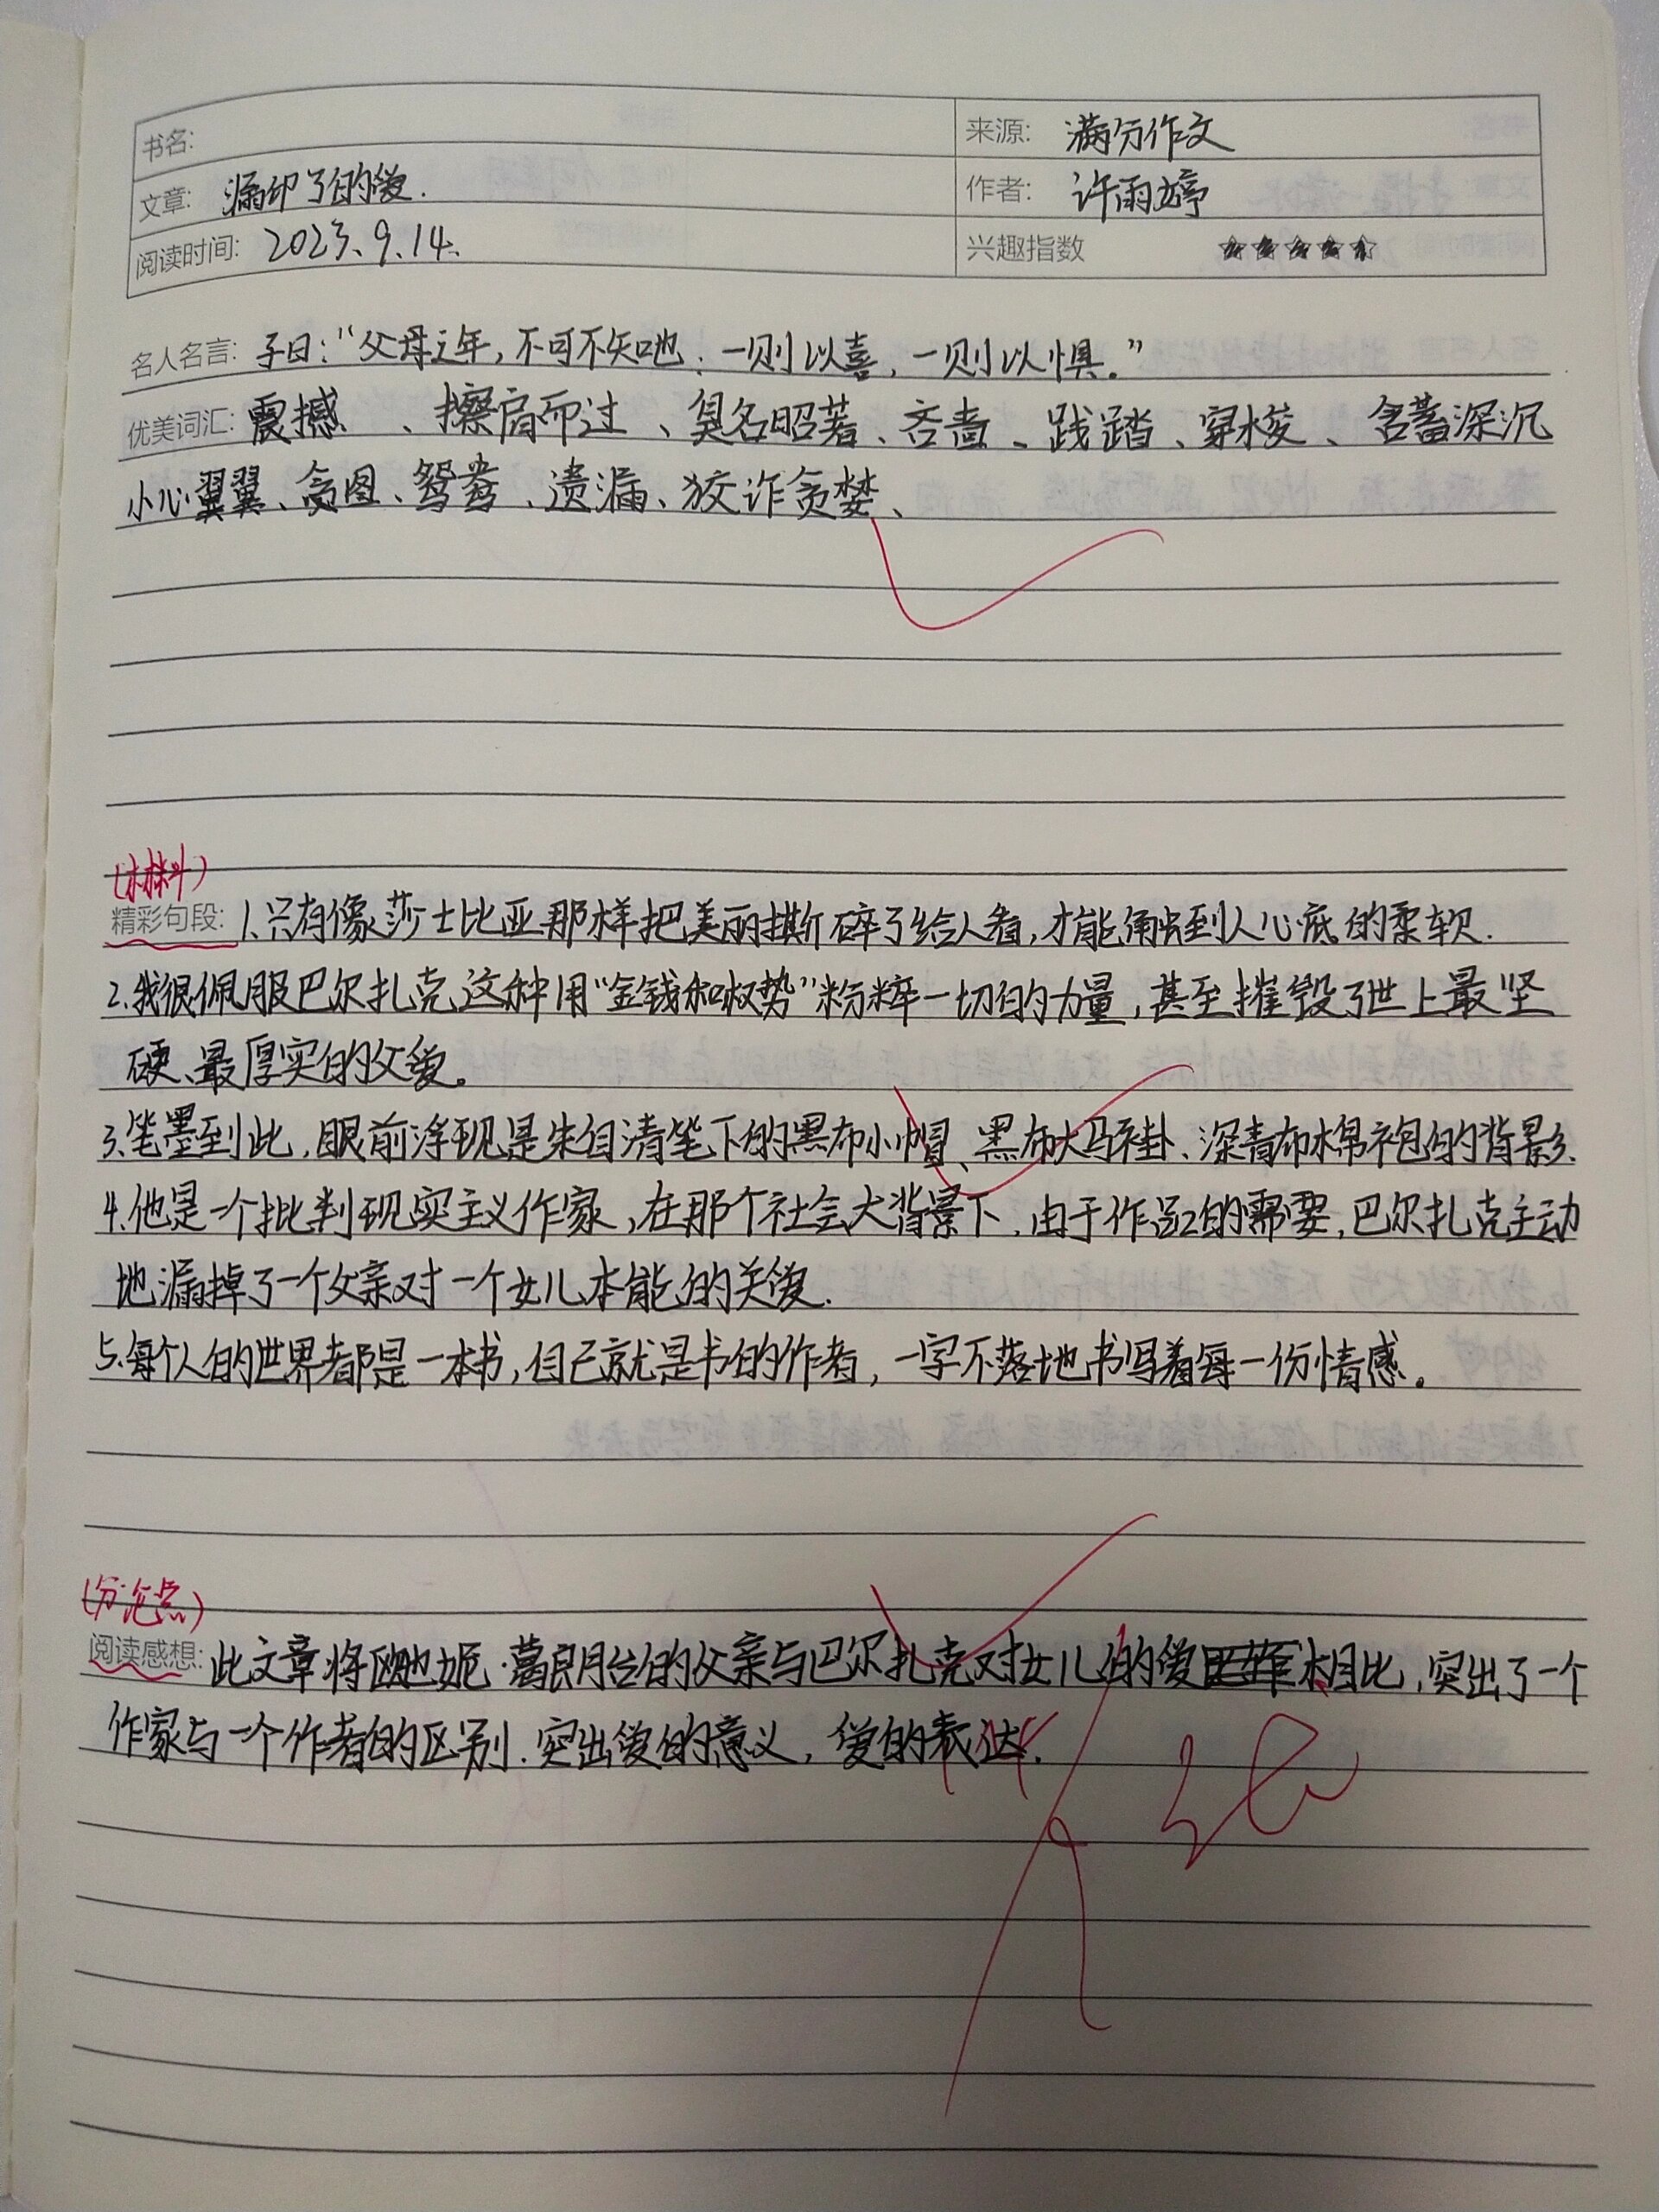 书名: 来源: 满分作文
文章: 漏印了的爱. 作者: 许雨婷
阅读时间: 2023、9、14. 兴趣指数 ☆☆☆☆☆
名人名言: 子曰:“父母之年,不可不知也:一则以喜,一则以惧.”
优美词汇: 震撼、擦肩而过、臭名昭著、吝啬、践踏、穿梭、含蓄深沉
小心翼翼、贪图、鸳鸯、遗漏、狡诈贪婪、
(材料)
精彩句段: 1.只有像莎士比亚那样把美丽撕碎了给人看,才能触到人心底的柔软.
2.我很佩服巴尔扎克这种用“金钱和权势”粉粹一切的力量,甚至摧毁了世上最坚
硬、最厚实的父爱。
3.笔墨到此,眼前浮现是朱自清笔下的黑布小帽、黑布大马褂、深青布棉袍的背影.
4.他是一个批判现实主义作家,在那个社会大背景下,由于作品的需要,巴尔扎克主动
地漏掉了一个父亲对一个女儿本能的关爱.
5.每个人的世界都是一本书,自己就是书的作者,一字不落地书写着每一份情感。
(分论点)
阅读感想: 此文章将欧也妮·葛朗台的父亲与巴尔扎克对女儿的爱相比,突出了一个
作家与一个作者的区别.突出爱的意义,爱的表达.